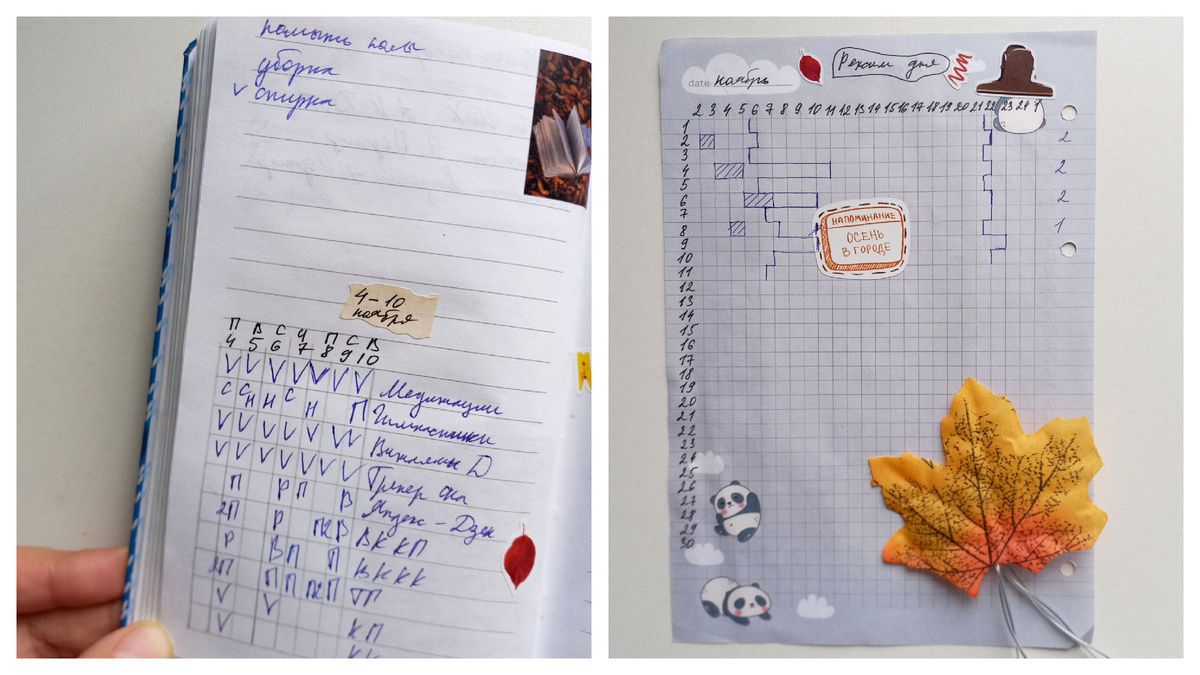 помыть полы
уборка
✓ стирка
4-10
ноября
П В С Ч П С В
4 5 6 7 8 9 10
V V V V V V V Медитации
С С Н Н С Н П Гимнастики
V V V V V V V Витамины D
V V V V V V V Трекер сна
П Р П В Яндекс-Дзен
2П Р П2 В ВК КП
Р В П П ВК КК
2П П П П2 П ТГ
V V КП
V КК
date: ноябрь
Режим дня
2 3 4 5 6 7 8 9 10 11 12 13 14 15 16 17 18 19 20 21 22 23 24 1
1
2 2
3
4 2
5
6 2
7
8 1
9
10
11
12
13
14
15
16
17
18
19
20
21
22
23
24
25
26
27
28
29
30
НАПОМИНАНИЕ
ОСЕНЬ
В ГОРОДЕ